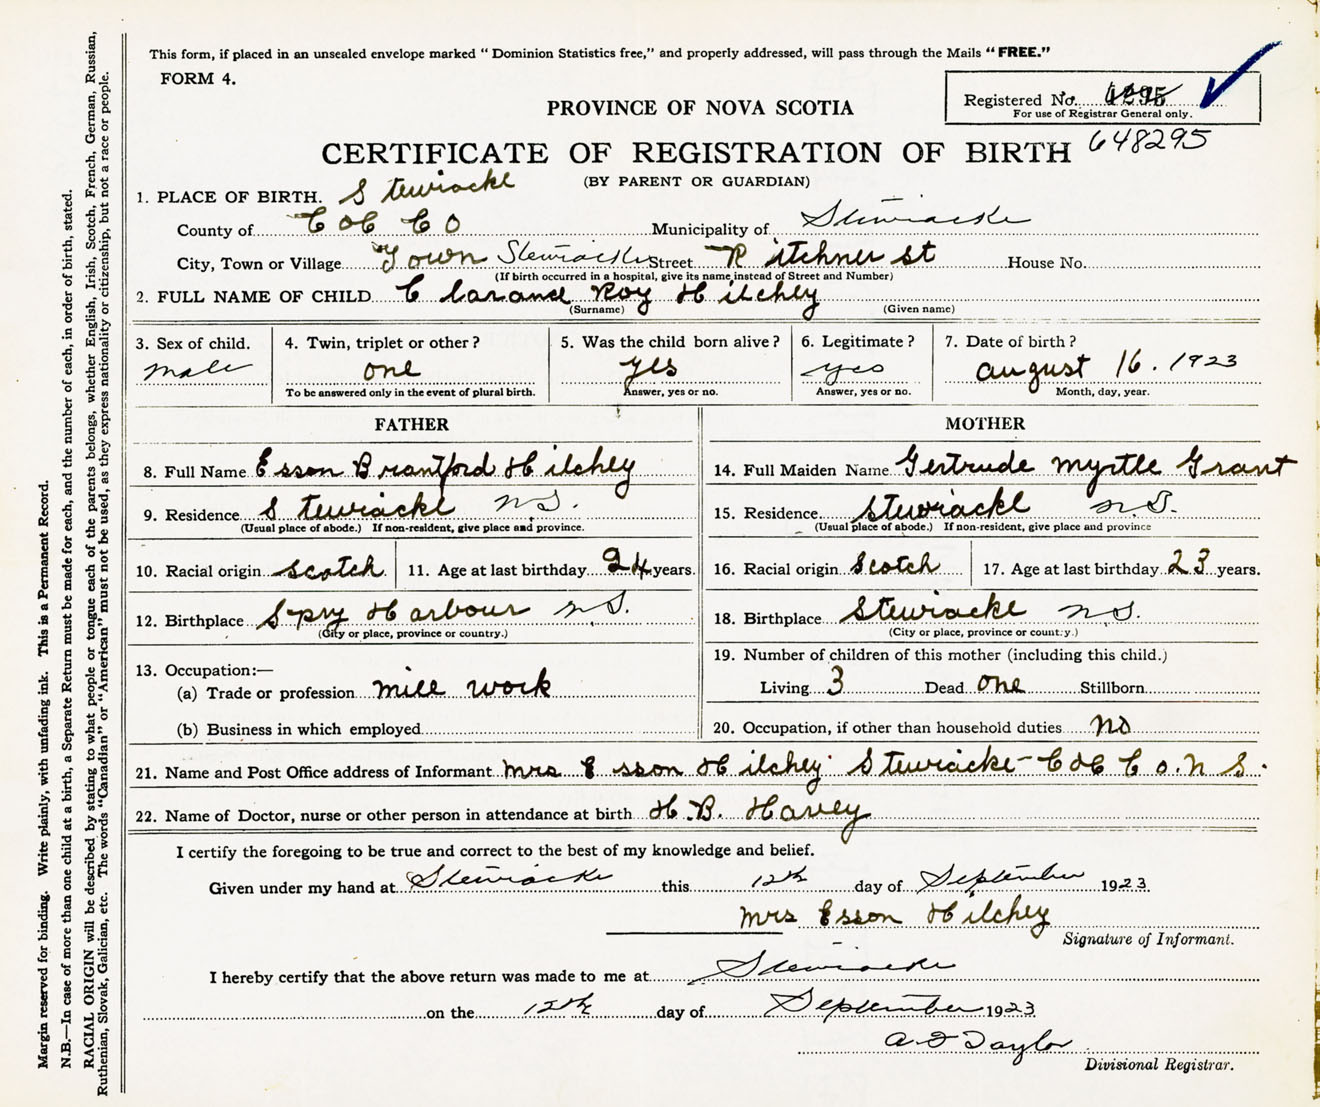 This form, if placed in an unsealed envelope marked "Dominion Statistics free," and properly addressed, will pass through the Mails "FREE."
FORM 4.
Registered No.
For use of Registrar General only.
648295
PROVINCE OF NOVA SCOTIA
CERTIFICATE OF REGISTRATION OF BIRTH
(BY PARENT OR GUARDIAN)
1. PLACE OF BIRTH. Stewiacke
County of Col Co Municipality of Stewiacke
City, Town or Village Town Stewiacke Street Kitchner St House No.
(If birth occurred in a hospital, give its name instead of Street and Number)
2. FULL NAME OF CHILD Clarance Roy Hilchey
(Surname) (Given name)
3. Sex of child. 4. Twin, triplet or other? 5. Was the child born alive? 6. Legitimate? 7. Date of birth?
male one yes yes august 16. 1923
To be answered only in the event of plural birth. Answer, yes or no. Answer, yes or no. Month, day, year.
FATHER MOTHER
8. Full Name Esson Brantford Hilchey 14. Full Maiden Name Gertrude myrtle Grant
9. Residence Stewiacke N.S. 15. Residence Stewiacke N.S.
(Usual place of abode.) If non-resident, give place and province. (Usual place of abode.) If non-resident, give place and province
10. Racial origin scotch 11. Age at last birthday 24 years. 16. Racial origin Scotch 17. Age at last birthday 23 years.
12. Birthplace Spry Harbour N.S. 18. Birthplace Stewiacke N.S.
(City or place, province or country.) (City or place, province or country.)
13. Occupation:— 19. Number of children of this mother (including this child.)
(a) Trade or profession mill work Living 3 Dead one Stillborn
(b) Business in which employed 20. Occupation, if other than household duties no
21. Name and Post Office address of Informant mrs Esson Hilchey Stewiacke - Col Co. N S.
22. Name of Doctor, nurse or other person in attendance at birth H.B. Havey
I certify the foregoing to be true and correct to the best of my knowledge and belief.
Given under my hand at Stewiacke this 12th day of September 1923
mrs Esson Hilchey
Signature of Informant.
I hereby certify that the above return was made to me at Stewiacke
on the 12th day of September 1923
A D Taylor
Divisional Registrar.
Margin reserved for binding. Write plainly, with unfading ink. This is a Permanent Record.
N.B.—In case of more than one child at a birth, a Separate Return must be made for each, and the number of each, in order of birth, stated.
RACIAL ORIGIN will be described by stating to what people or tongue each of the parents belongs, whether English, Irish, Scotch, French, German, Russian,
Ruthenian, Slovak, Galician, etc. The words "Canadian" or "American" must not be used, as they express nationality or citizenship, but not a race or people.